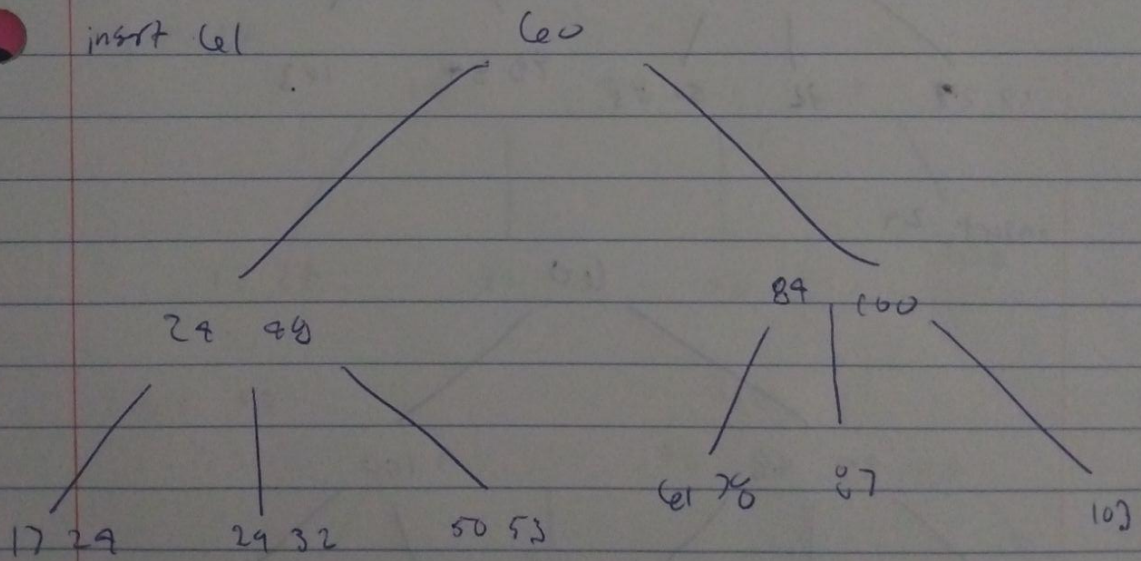 insert 61
60
24 48
84 100
17 24
29 32
50 53
61 78
87
103